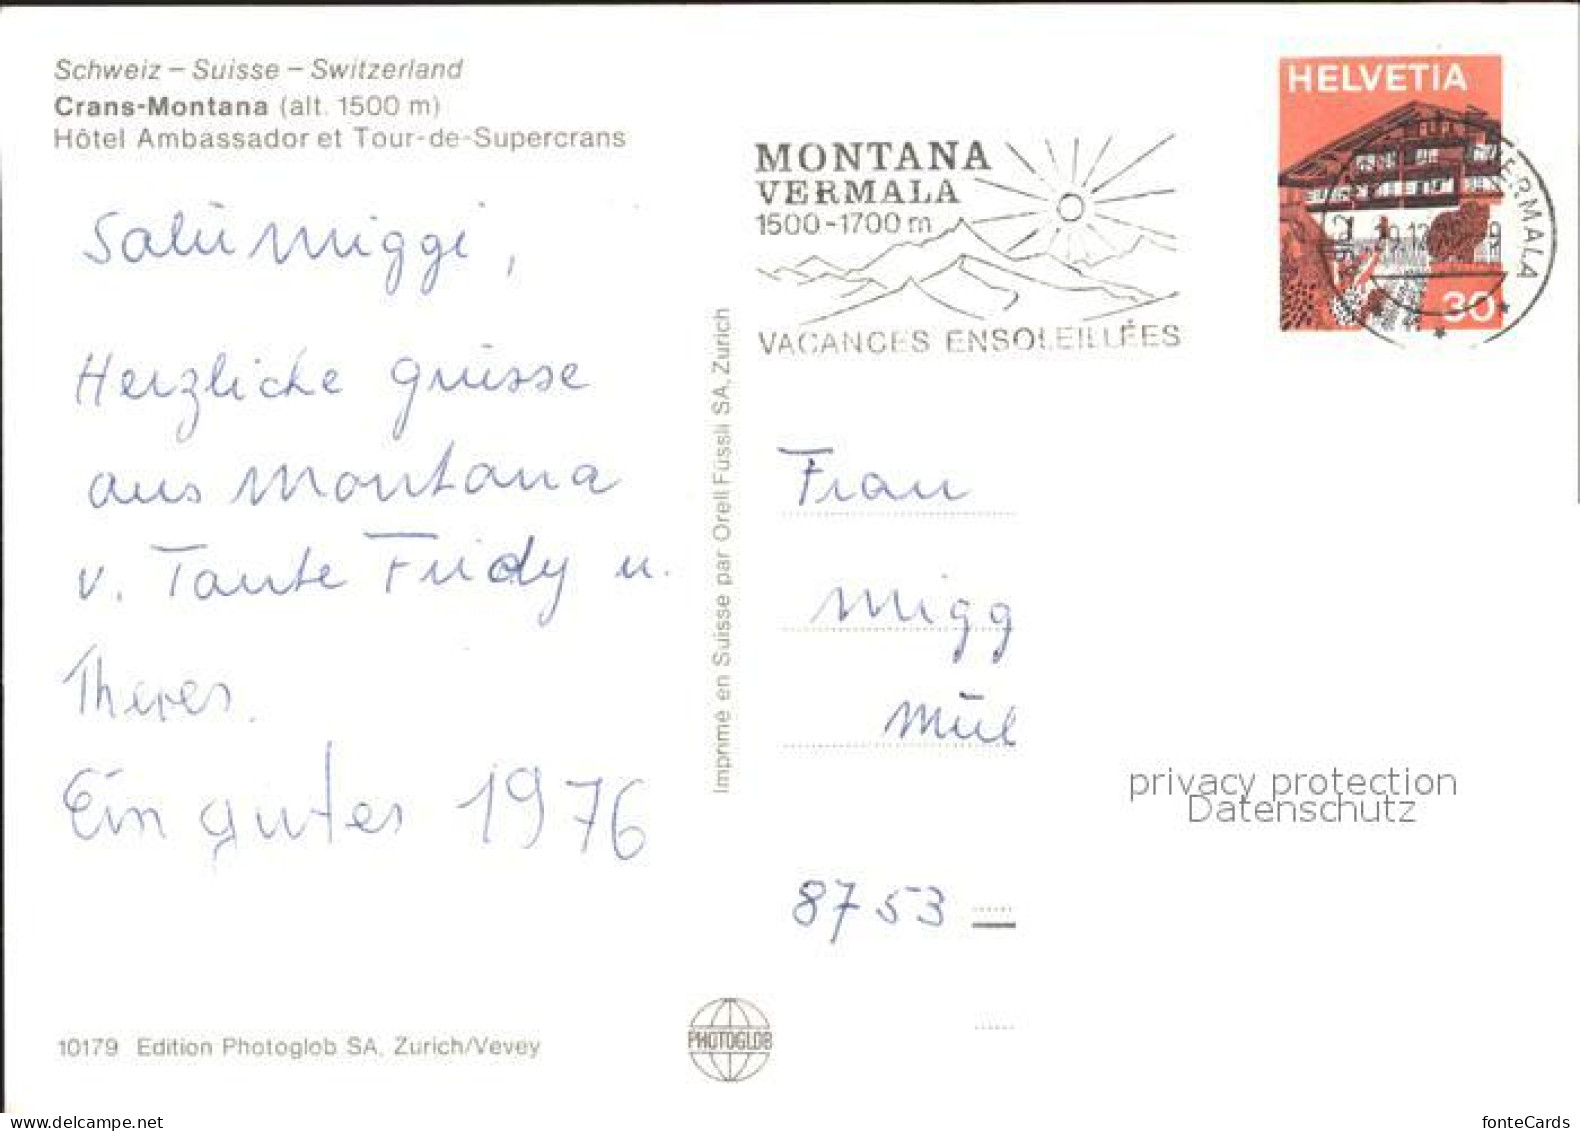 Schweiz – Suisse – Switzerland
Crans-Montana (alt. 1500 m)
Hôtel Ambassador et Tour-de-Supercrans
Salü Miggi,
Herzliche Grüsse
aus Montana
v. Tante Fridy u.
Theres.
Ein gutes 1976
10179 Edition Photoglob SA, Zürich/Vevey
Imprimé en Suisse par Orell Füssli SA, Zürich
PHOTOGLOB
MONTANA
VERMALA
1500-1700 m
VACANCES ENSOLEILLÉES
HELVETIA
30
VERMALA
Frau
Migg
Mül
8753
privacy protection
Datenschutz
delcampe.net
fonteCards